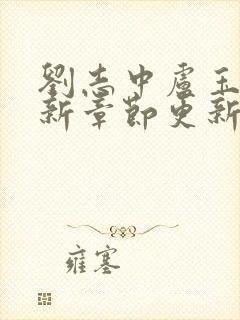 劉志中盧玉
新章節更新
雍塞